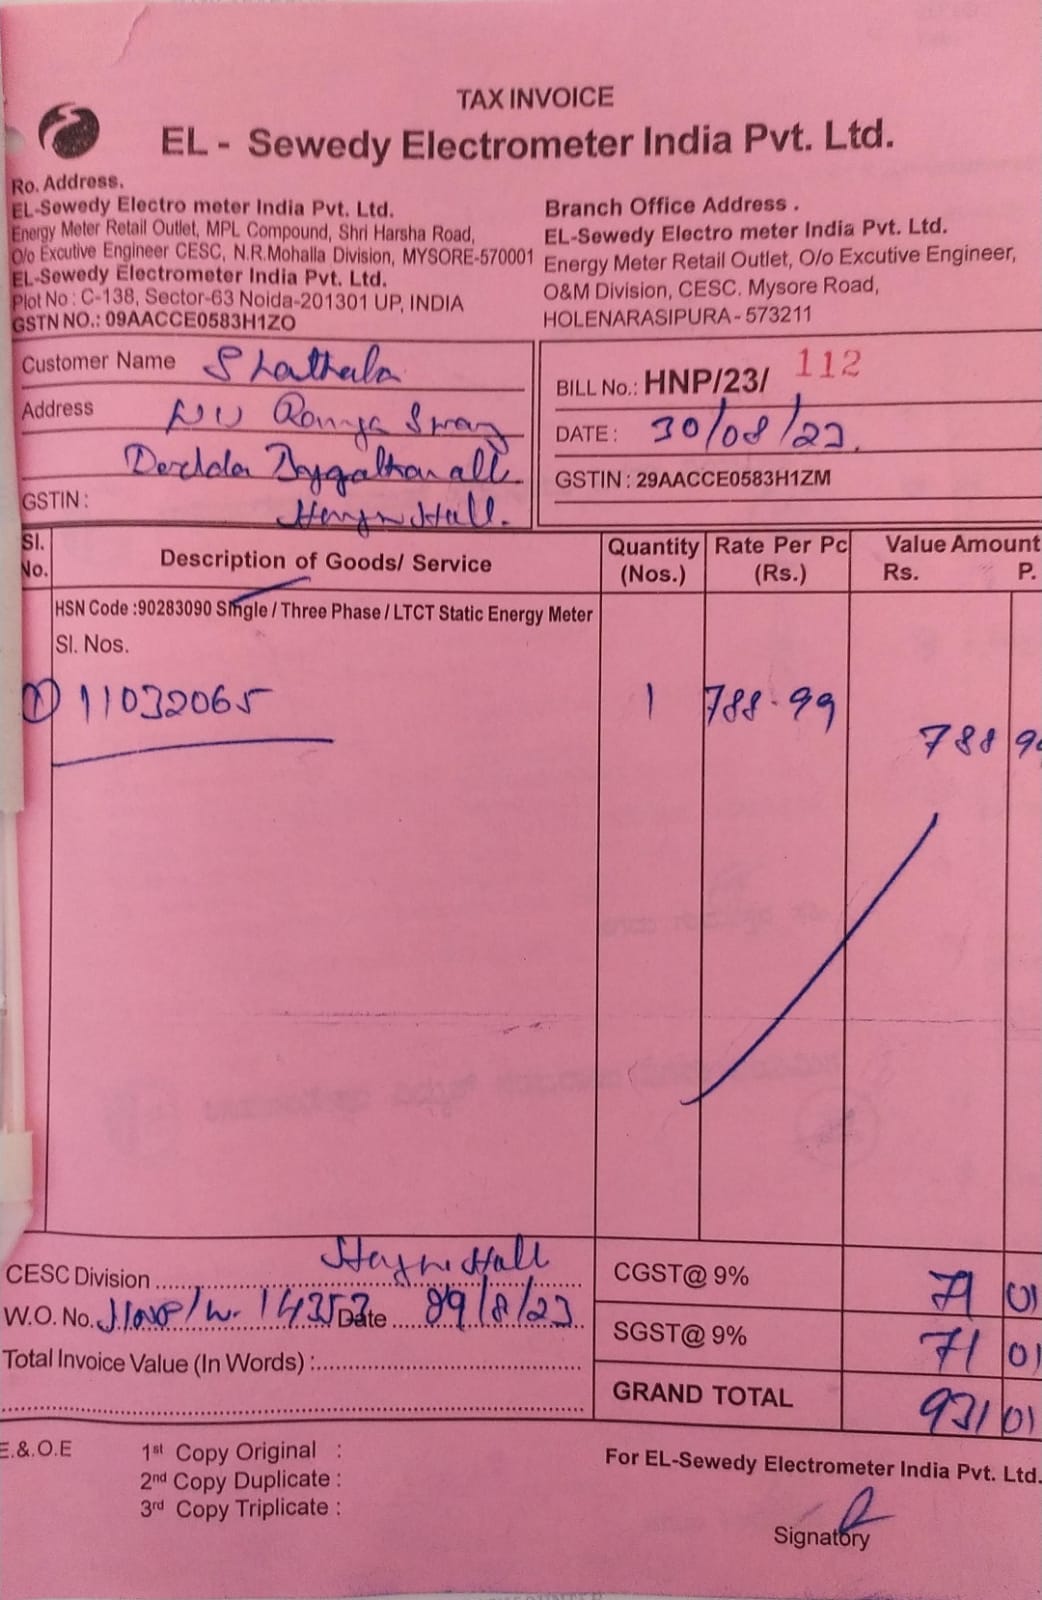 TAX INVOICE
EL - Sewedy Electrometer India Pvt. Ltd.
Ro. Address.
EL-Sewedy Electro meter India Pvt. Ltd.
Energy Meter Retail Outlet, MPL Compound, Shri Harsha Road,
O/o Excutive Engineer CESC, N.R.Mohalla Division, MYSORE-570001
EL-Sewedy Electrometer India Pvt. Ltd.
Plot No : C-138, Sector-63 Noida-201301 UP, INDIA
GSTN NO.: 09AACCE0583H1ZO
Branch Office Address .
EL-Sewedy Electro meter India Pvt. Ltd.
Energy Meter Retail Outlet, O/o Excutive Engineer,
O&M Division, CESC. Mysore Road,
HOLENARASIPURA - 573211
Customer Name
Address
GSTIN :
BILL No.: HNP/23/ 112
DATE : 30/08/23.
GSTIN : 29AACCE0583H1ZM
Sl. No. Description of Goods/ Service Quantity (Nos.) Rate Per Pc (Rs.) Value Amount Rs. P.
HSN Code :90283090 Single / Three Phase / LTCT Static Energy Meter
Sl. Nos.
1 11032065 1 788.99
788
CESC Division
W.O. No. 14353 Date 29/8/23
Total Invoice Value (In Words) :
CGST@ 9% 71 01
SGST@ 9% 71 01
GRAND TOTAL 931 01
E.& O.E
1st Copy Original :
2nd Copy Duplicate :
3rd Copy Triplicate :
For EL-Sewedy Electrometer India Pvt. Ltd.
Signatory